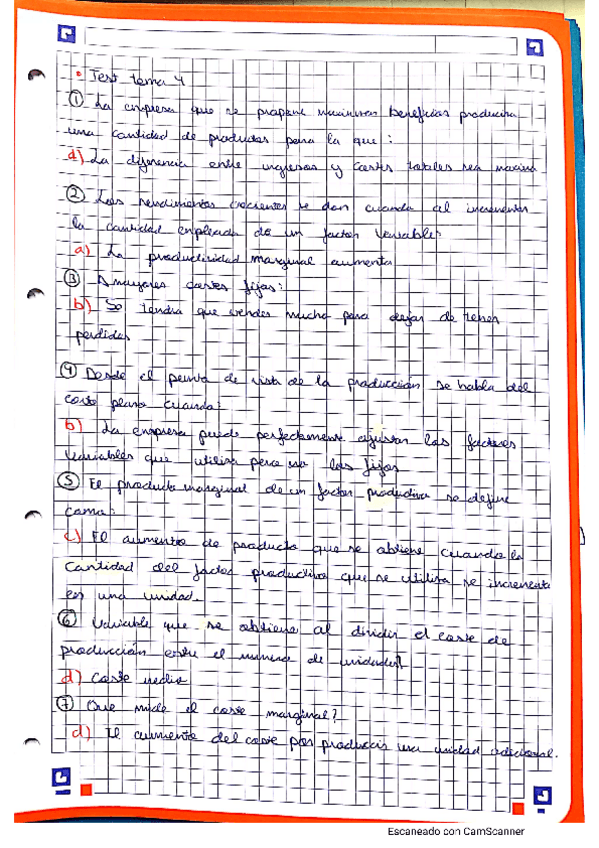 • Test tema 4
① La empresa que se propone maximizar beneficios producira
una cantidad de productos para la que:
d) La diferencia entre ingresos y costes totales sea maxima
② Los rendimientos crecientes se dan cuando al incrementar
la cantidad empleada de un factor variable:
a) La productividad marginal aumenta
③ A mayores costes fijos:
b) Se tendra que vender mucho para dejar de tener
perdidas
④ Desde el punto de vista de la producción se habla del
corto plazo cuando:
b) La empresa puede perfectamente ajustar los factores
variables que utiliza pero no los fijos
⑤ El producto marginal de un factor productivo se define
como:
c) El aumento de producto que se obtiene cuando la
cantidad del factor productivo que se utiliza se incrementa
en una unidad.
⑥ Variable que se obtiene al dividir el coste de
producción entre el numero de unidades
d) Coste medio
⑦ Que mide el coste marginal?
d) El aumento del coste por producir una unidad adicional.
Escaneado con CamScanner